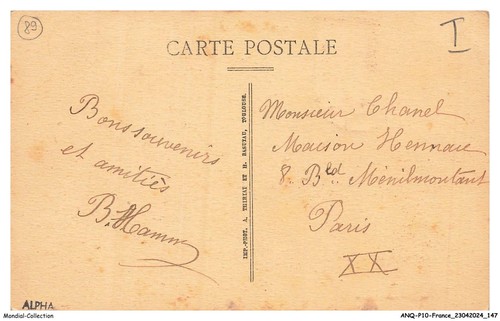 89
T
CARTE POSTALE
Bons souvenirs
et amitiés
B. Hamm
IMP.-PHOT. A. THIRIAT ET H. BASUYAU, TOULOUSE.
Monsieur Chanel
Maison
8 Bld Ménilmontant
Paris
XX
ALPHA
Mondial-Collection
ANQ-P10-France_23042024_147